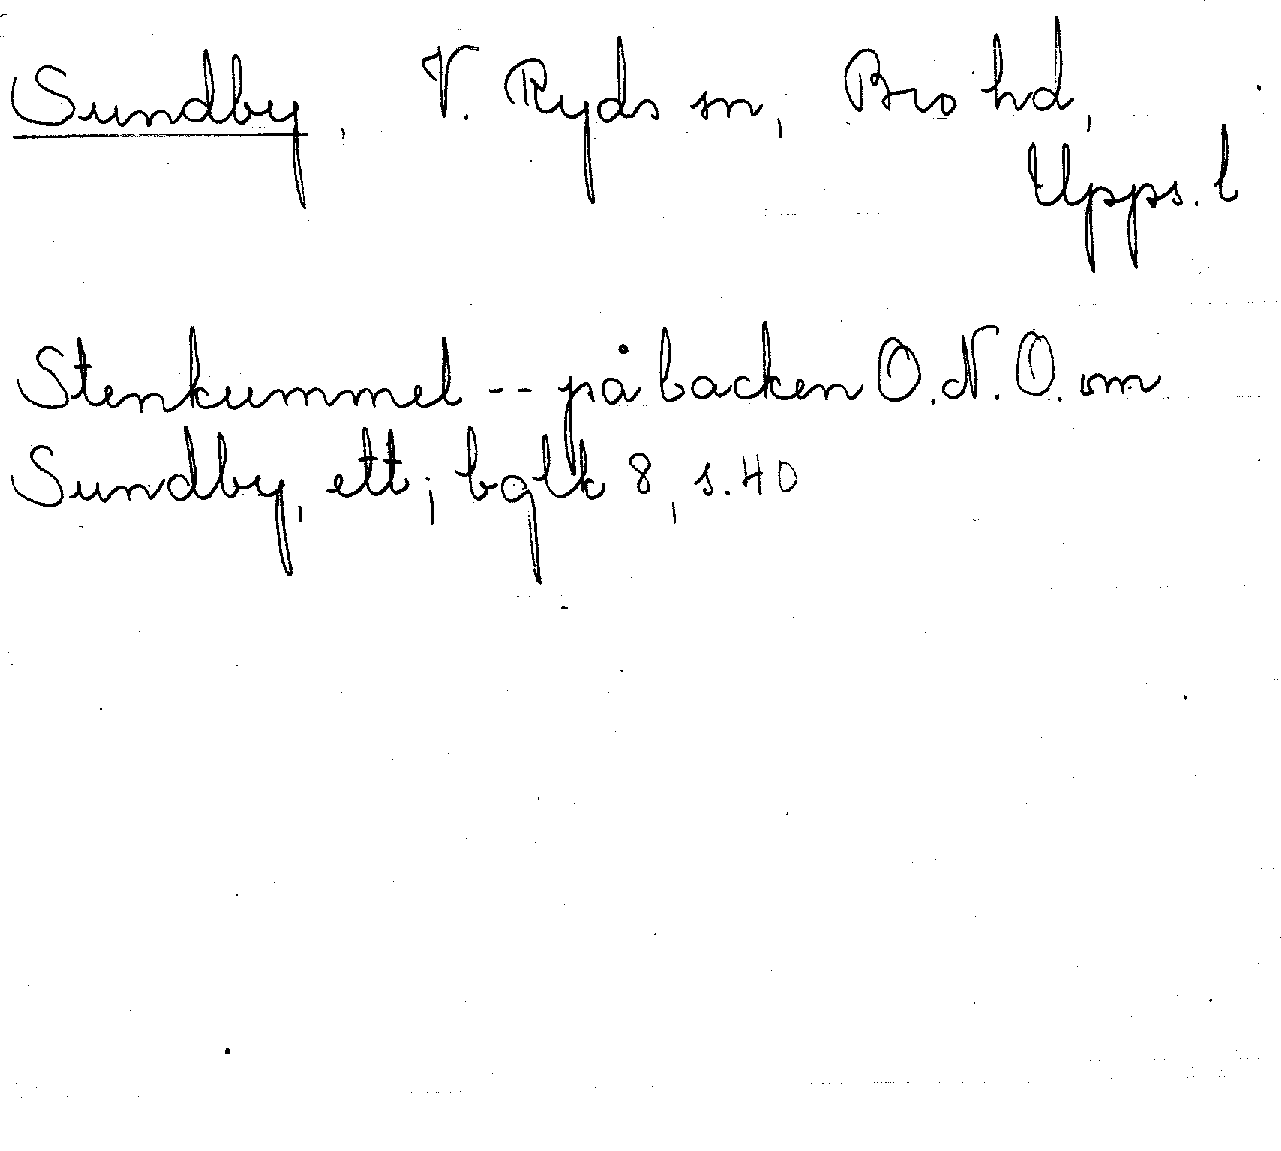 Sundby, V. Ryds sn, Bro hd,
Upps. l
Stenkummel -- på backen O.N.O. om
Sundby, ett; bglk 8, s. 40